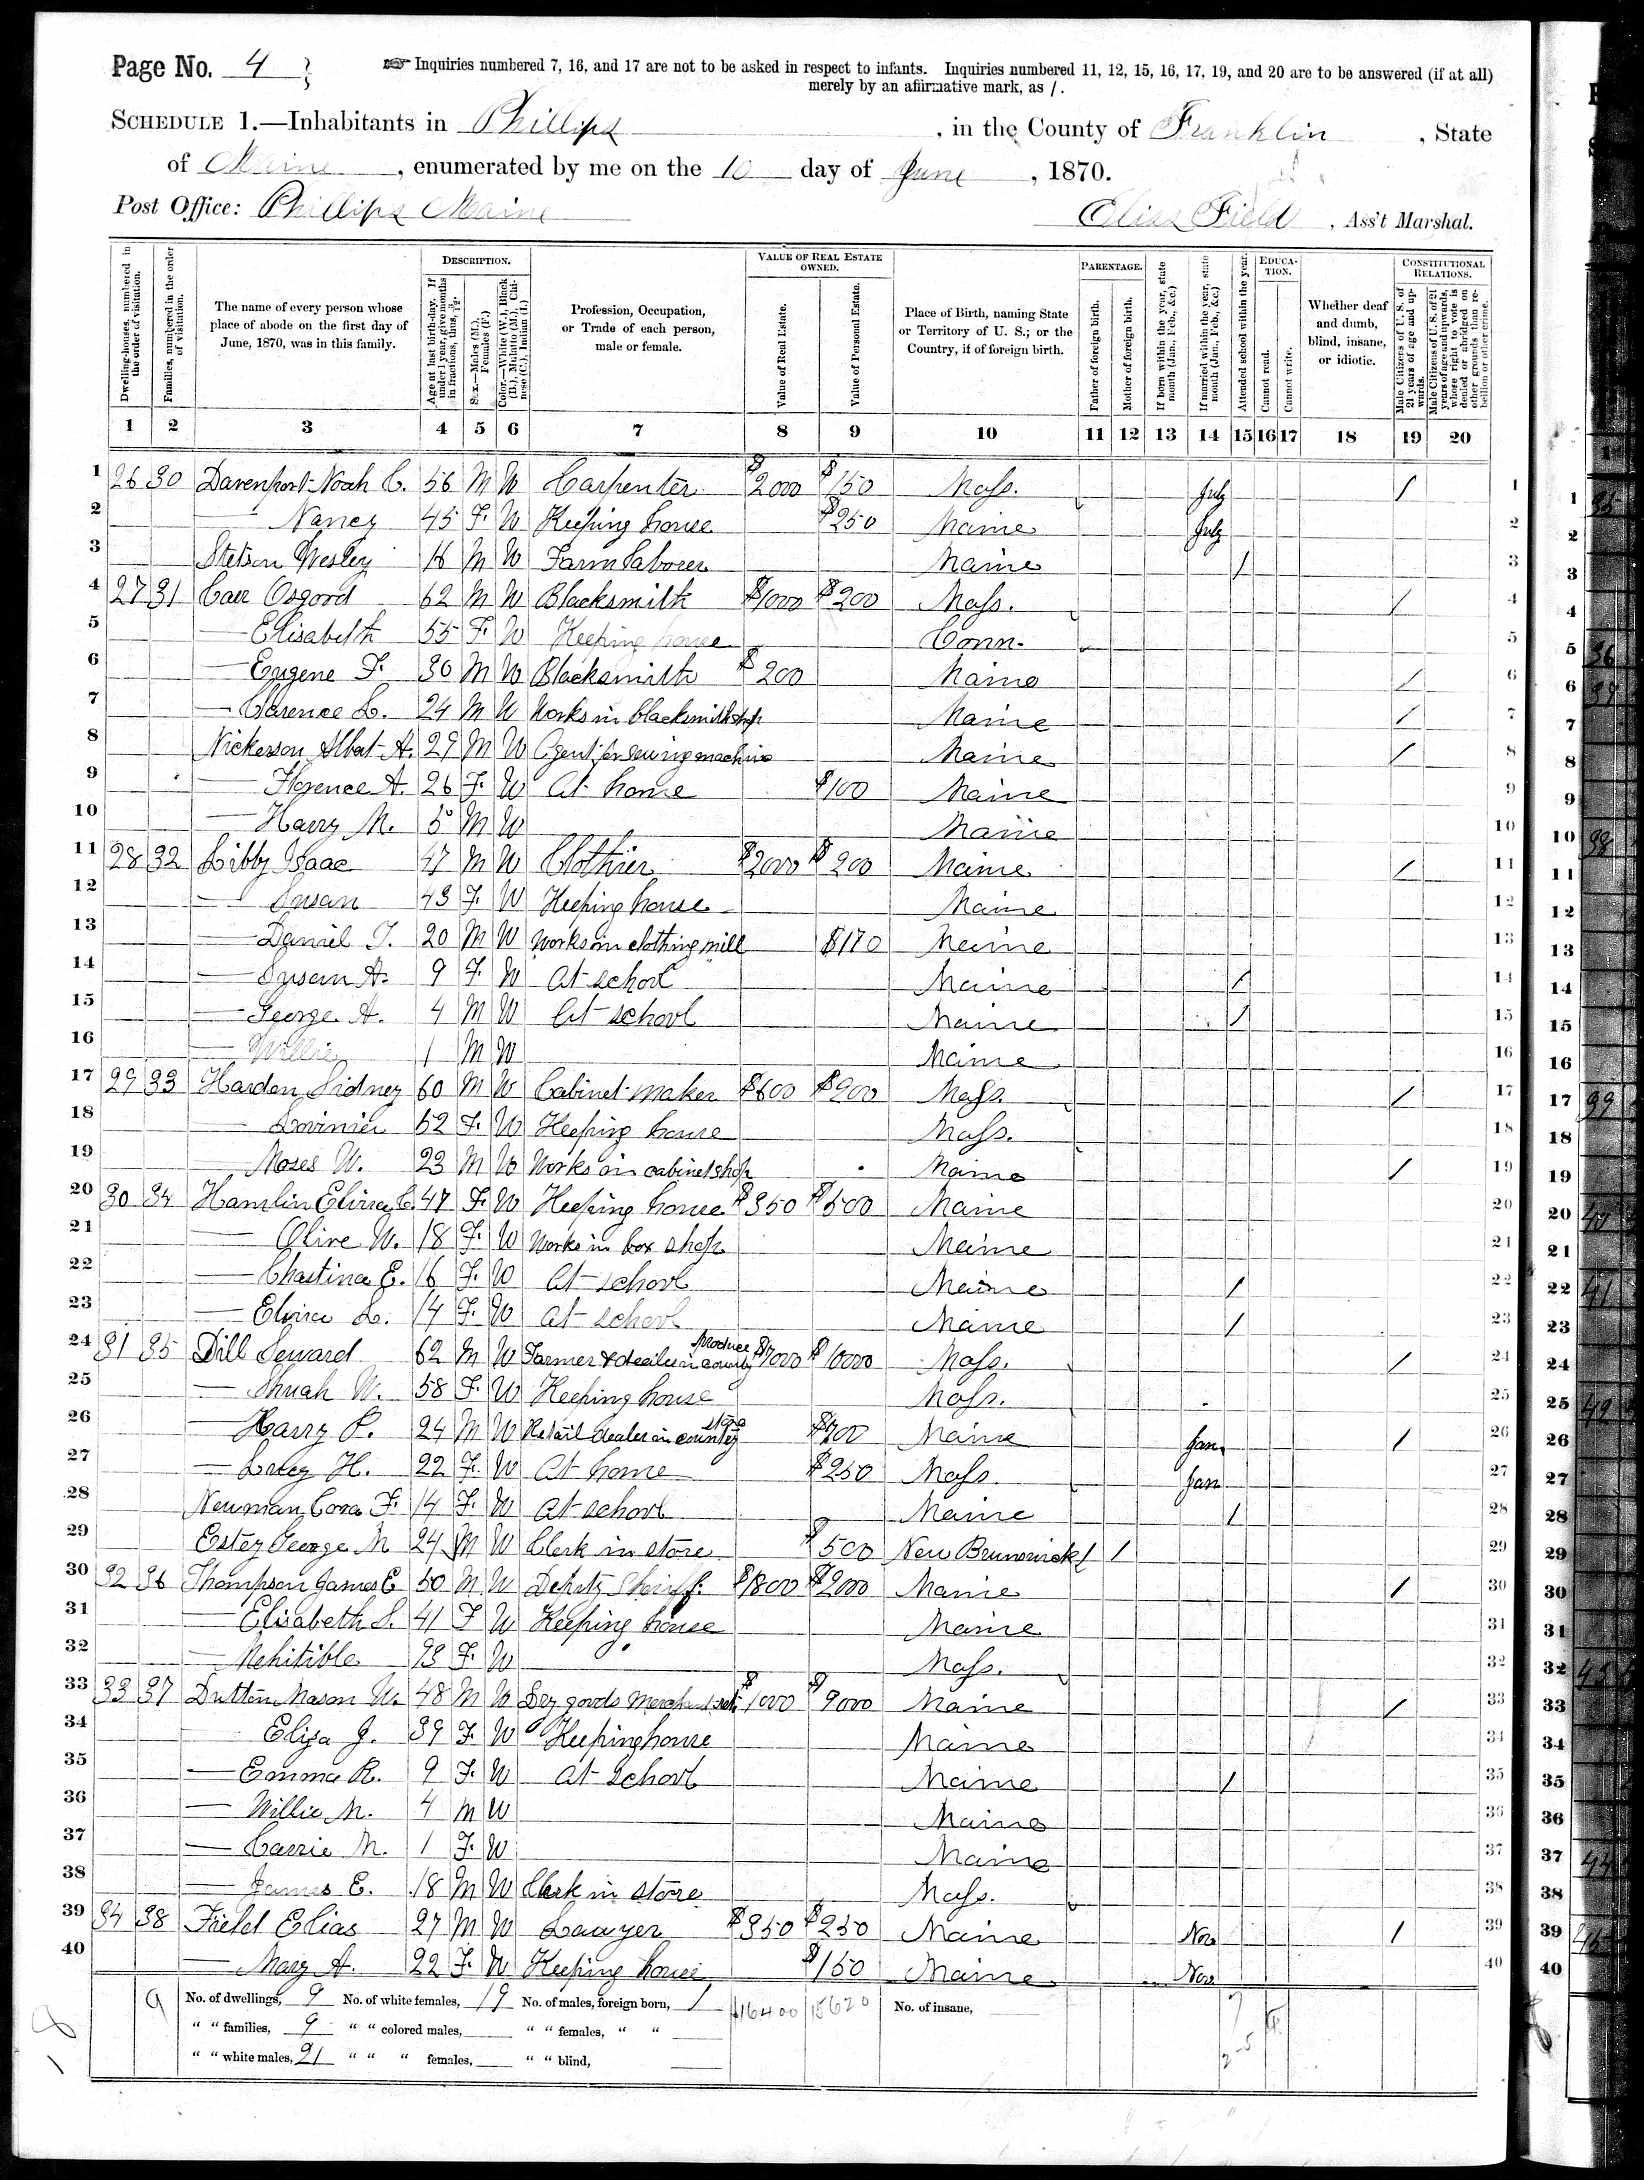 Page No. 4
Inquiries numbered 7, 16, and 17 are not to be asked in respect to infants. Inquiries numbered 11, 12, 15, 16, 17, 19, and 20 are to be answered (if at all)
merely by an affirmative mark, as /.
SCHEDULE 1.—Inhabitants in Phillips, in the County of Franklin, State
of Maine, enumerated by me on the 10 day of June, 1870.
Post Office: Phillips Maine Elias Field, Ass't Marshal.
Dwelling-houses, numbered in the order of visitation.
Families, numbered in the order of visitation.
The name of every person whose place of abode on the first day of June, 1870, was in this family.
DESCRIPTION.
Age at last birth-day. If under 1 year, give months in fractions, thus, 3/12.
Sex.—Males (M.), Females (F.)
Color.—White (W.), Black (B.), Mulatto (M.), Chinese (C.), Indian (I.)
Profession, Occupation, or Trade of each person, male or female.
VALUE OF REAL ESTATE OWNED.
Value of Real Estate.
Value of Personal Estate.
Place of Birth, naming State or Territory of U. S.; or the Country, if of foreign birth.
PARENTAGE.
Father of foreign birth.
Mother of foreign birth.
If born within the year, state month (Jan., Feb., &c.)
If married within the year, state month (Jan., Feb., &c.)
Attended school within the year.
EDUCATION.
Cannot read.
Cannot write.
Whether deaf and dumb, blind, insane, or idiotic.
CONSTITUTIONAL RELATIONS.
Male Citizens of U. S. of 21 years of age and upwards.
Male Citizens of U. S. of 21 years of age and upwards, whose right to vote is denied or abridged on other grounds than rebellion or other crime.
1 2 3 4 5 6 7 8 9 10 11 12 13 14 15 16 17 18 19 20
1 26 30 Davenport Noah C. 56 M W Carpenter $2000 $150 Mass. July / 1
2 — Nancy 45 F. W Keeping house $250 Maine July 2
3 Stetson Wesley 16 M W Farm laborer Maine / 3
4 27 31 Carr Osgood 62 M W Blacksmith $1000 $200 Mass. / 4
5 — Elisabeth 55 F. W Keeping house Conn. 5
6 — Eugene F. 30 M W Blacksmith $200 Maine / 6
7 — Clarence L. 24 M W Works in blacksmith shop Maine / 7
8 Nickerson Albert A. 29 M W Agent for sewing machine Maine / 8
9 — Florence A. 26 F. W At home $100 Maine 9
10 — Harry M. 5 M W Maine 10
11 28 32 Libby Isaac 47 M W Clothier $2000 $200 Maine / 11
12 — Susan 43 F. W Keeping house Maine 12
13 — Daniel T. 20 M W Works in clothing mill $170 Maine 13
14 — Susan A. 9 F. W At school Maine / 14
15 — George A. 4 M W At school Maine / 15
16 — Willie 1 M W Maine 16
17 29 33 Harden Sidney 60 M W Cabinet maker $600 $900 Mass. / 17
18 — Lovinia 52 F. W Keeping house Mass. 18
19 — Moses W. 23 M W Works in cabinet shop Maine / 19
20 30 34 Hamlin Elvira C. 47 F. W Keeping house $350 $500 Maine 20
21 — Olive W. 18 F. W Works in box shop Maine 21
22 — Chastina E. 16 F. W At school Maine / 22
23 — Elvira L. 14 F. W At school Maine / 23
24 31 35 Dill Seward 62 M W Farmer & dealer in county produce $7000 $10000 Mass. / 24
25 — Shuah W. 58 F. W Keeping house Mass. 25
26 — Harry P. 24 M W Retail dealer in country store $700 Maine Jan. / 26
27 — Lucy H. 22 F. W At home $250 Mass. Jan 27
28 Newman Cora F. 14 F. W At school Maine / 28
29 Estey George M 24 M W Clerk in store $500 New Brunswick / / 29
30 32 36 Thompson James E 50 M W Deputy Sheriff. $1800 $2000 Maine / 30
31 — Elisabeth S. 41 F W Keeping house Maine 31
32 — Mehitible 73 F. W Mass. 32
33 33 37 Dutton Mason W. 48 M W Dry goods Merchant $1000 $9000 Maine / 33
34 Eliza J. 39 F. W Keeping house Maine 34
35 — Emma R. 9 F. W At School Maine / 35
36 — Willie M. 4 M W Maine 36
37 — Carrie M. 1 F. W Maine 37
38 — James E. 18 M W Clerk in store Mass. 38
39 34 38 Field Elias 27 M W Lawyer $350 $250 Maine Nov / 39
40 — Mary A. 22 F. W Keeping house $150 Maine Nov 40
9 No. of dwellings, 9 No. of white females, 19 No. of males, foreign born, 1 $16400 15620 No. of insane,
" " families, 9 " " colored males, " " females, " "
" " white males, 21 " " " females, " " blind,
18